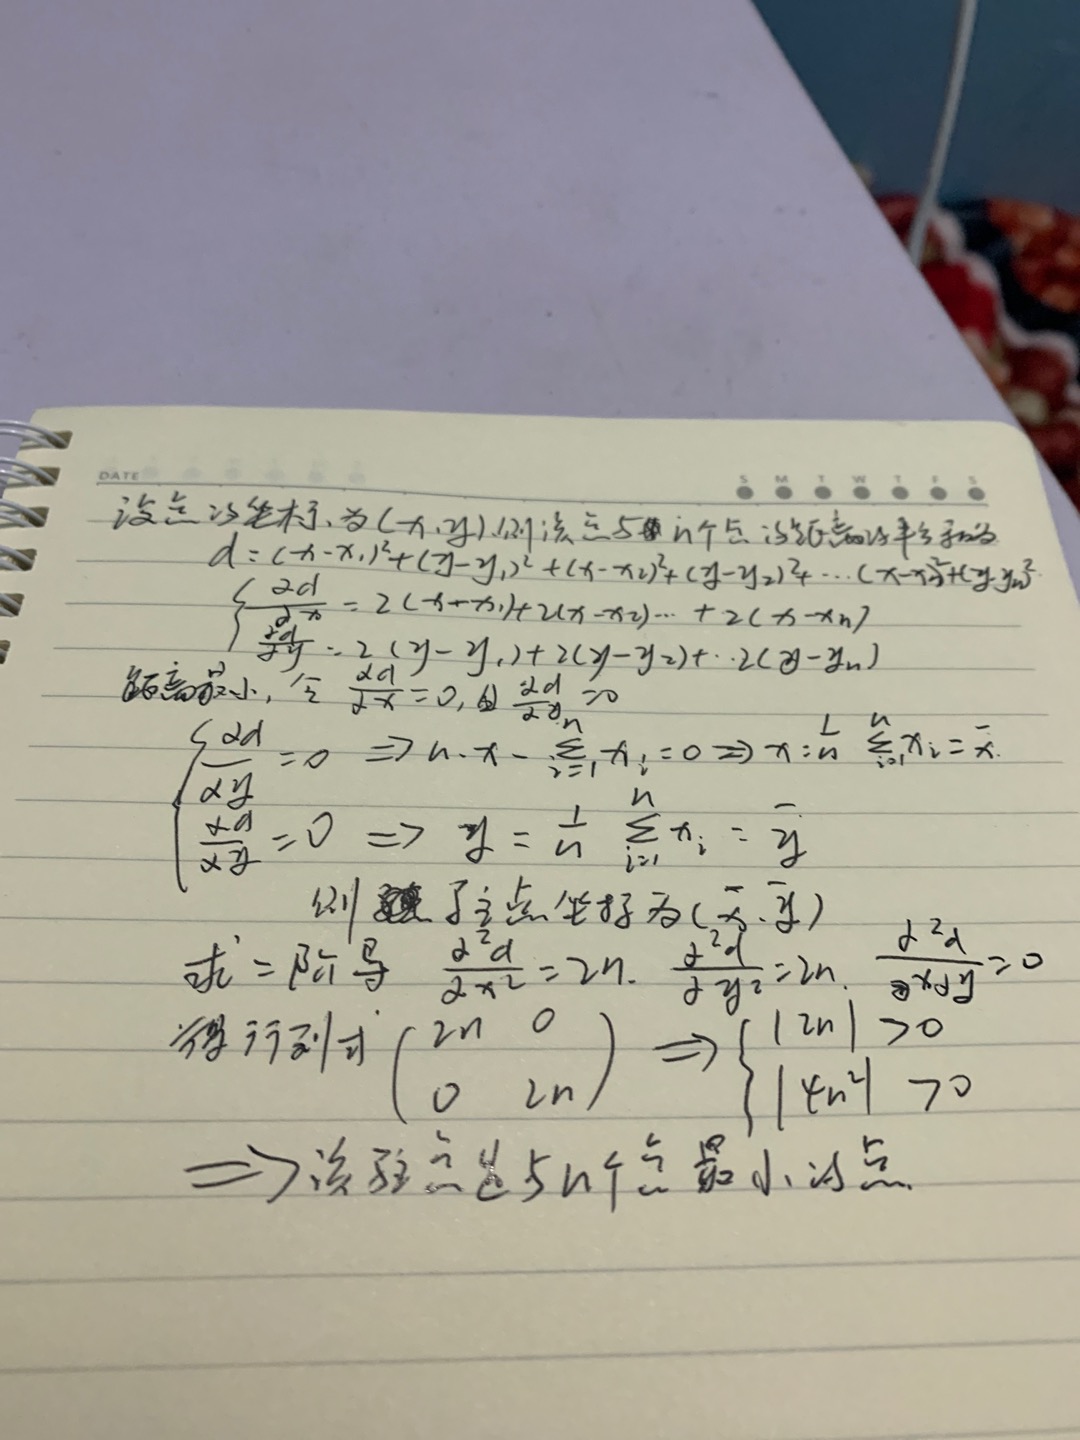 DATE
S M T W T F S
设点的坐标为(x,y)则该点与n个点的距离的平方和为
d=(x-x₁)²+(y-y₁)²+(x-x₂)²+(y-y₂)²+…(x-xₙ)²+(y-yₙ)²
∂d/∂x=2(x+x₁)+2(x-x₂)…+2(x-xₙ)
∂d/∂y=2(y-y₁)+2(y-y₂)+..2(y-yₙ)
距离最小,令 ∂d/∂x=0,且 ∂d/∂y=0
{∂d/∂y=0 ⇒ n·x-∑ᵢ₌₁ⁿxᵢ=0 ⇒ x=1/n ∑ᵢ₌₁ⁿxᵢ=x̄.
∂d/∂y=0 ⇒ y=1/n ∑ᵢ₌₁ⁿxᵢ=ȳ
则 点坐标为(x̄.ȳ)
求二阶导 ∂²d/∂x²=2n. ∂²d/∂y²=2n. ∂²d/∂x∂y=0
得行列式 (2n 0
0 2n) ⇒ {|2n|>0
|4n²|>0
⇒该驻点是与n个点最小的点.